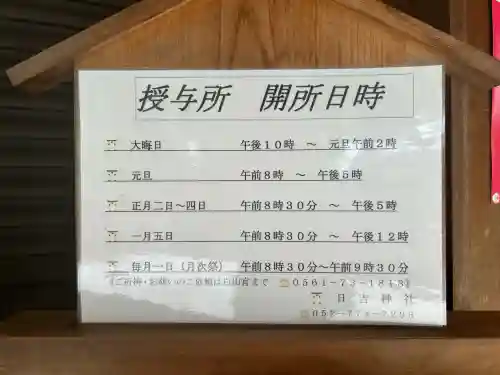 授与所 開所日時
大晦日 午後10時 ～ 元旦午前2時
元旦 午前8時 ～ 午後5時
正月二日～四日 午前8時30分 ～ 午後5時
一月五日 午前8時30分 ～ 午後12時
毎月一日（月次祭） 午前8時30分～午前9時30分
白山宮まで ☎0561-73-1818
日吉神社